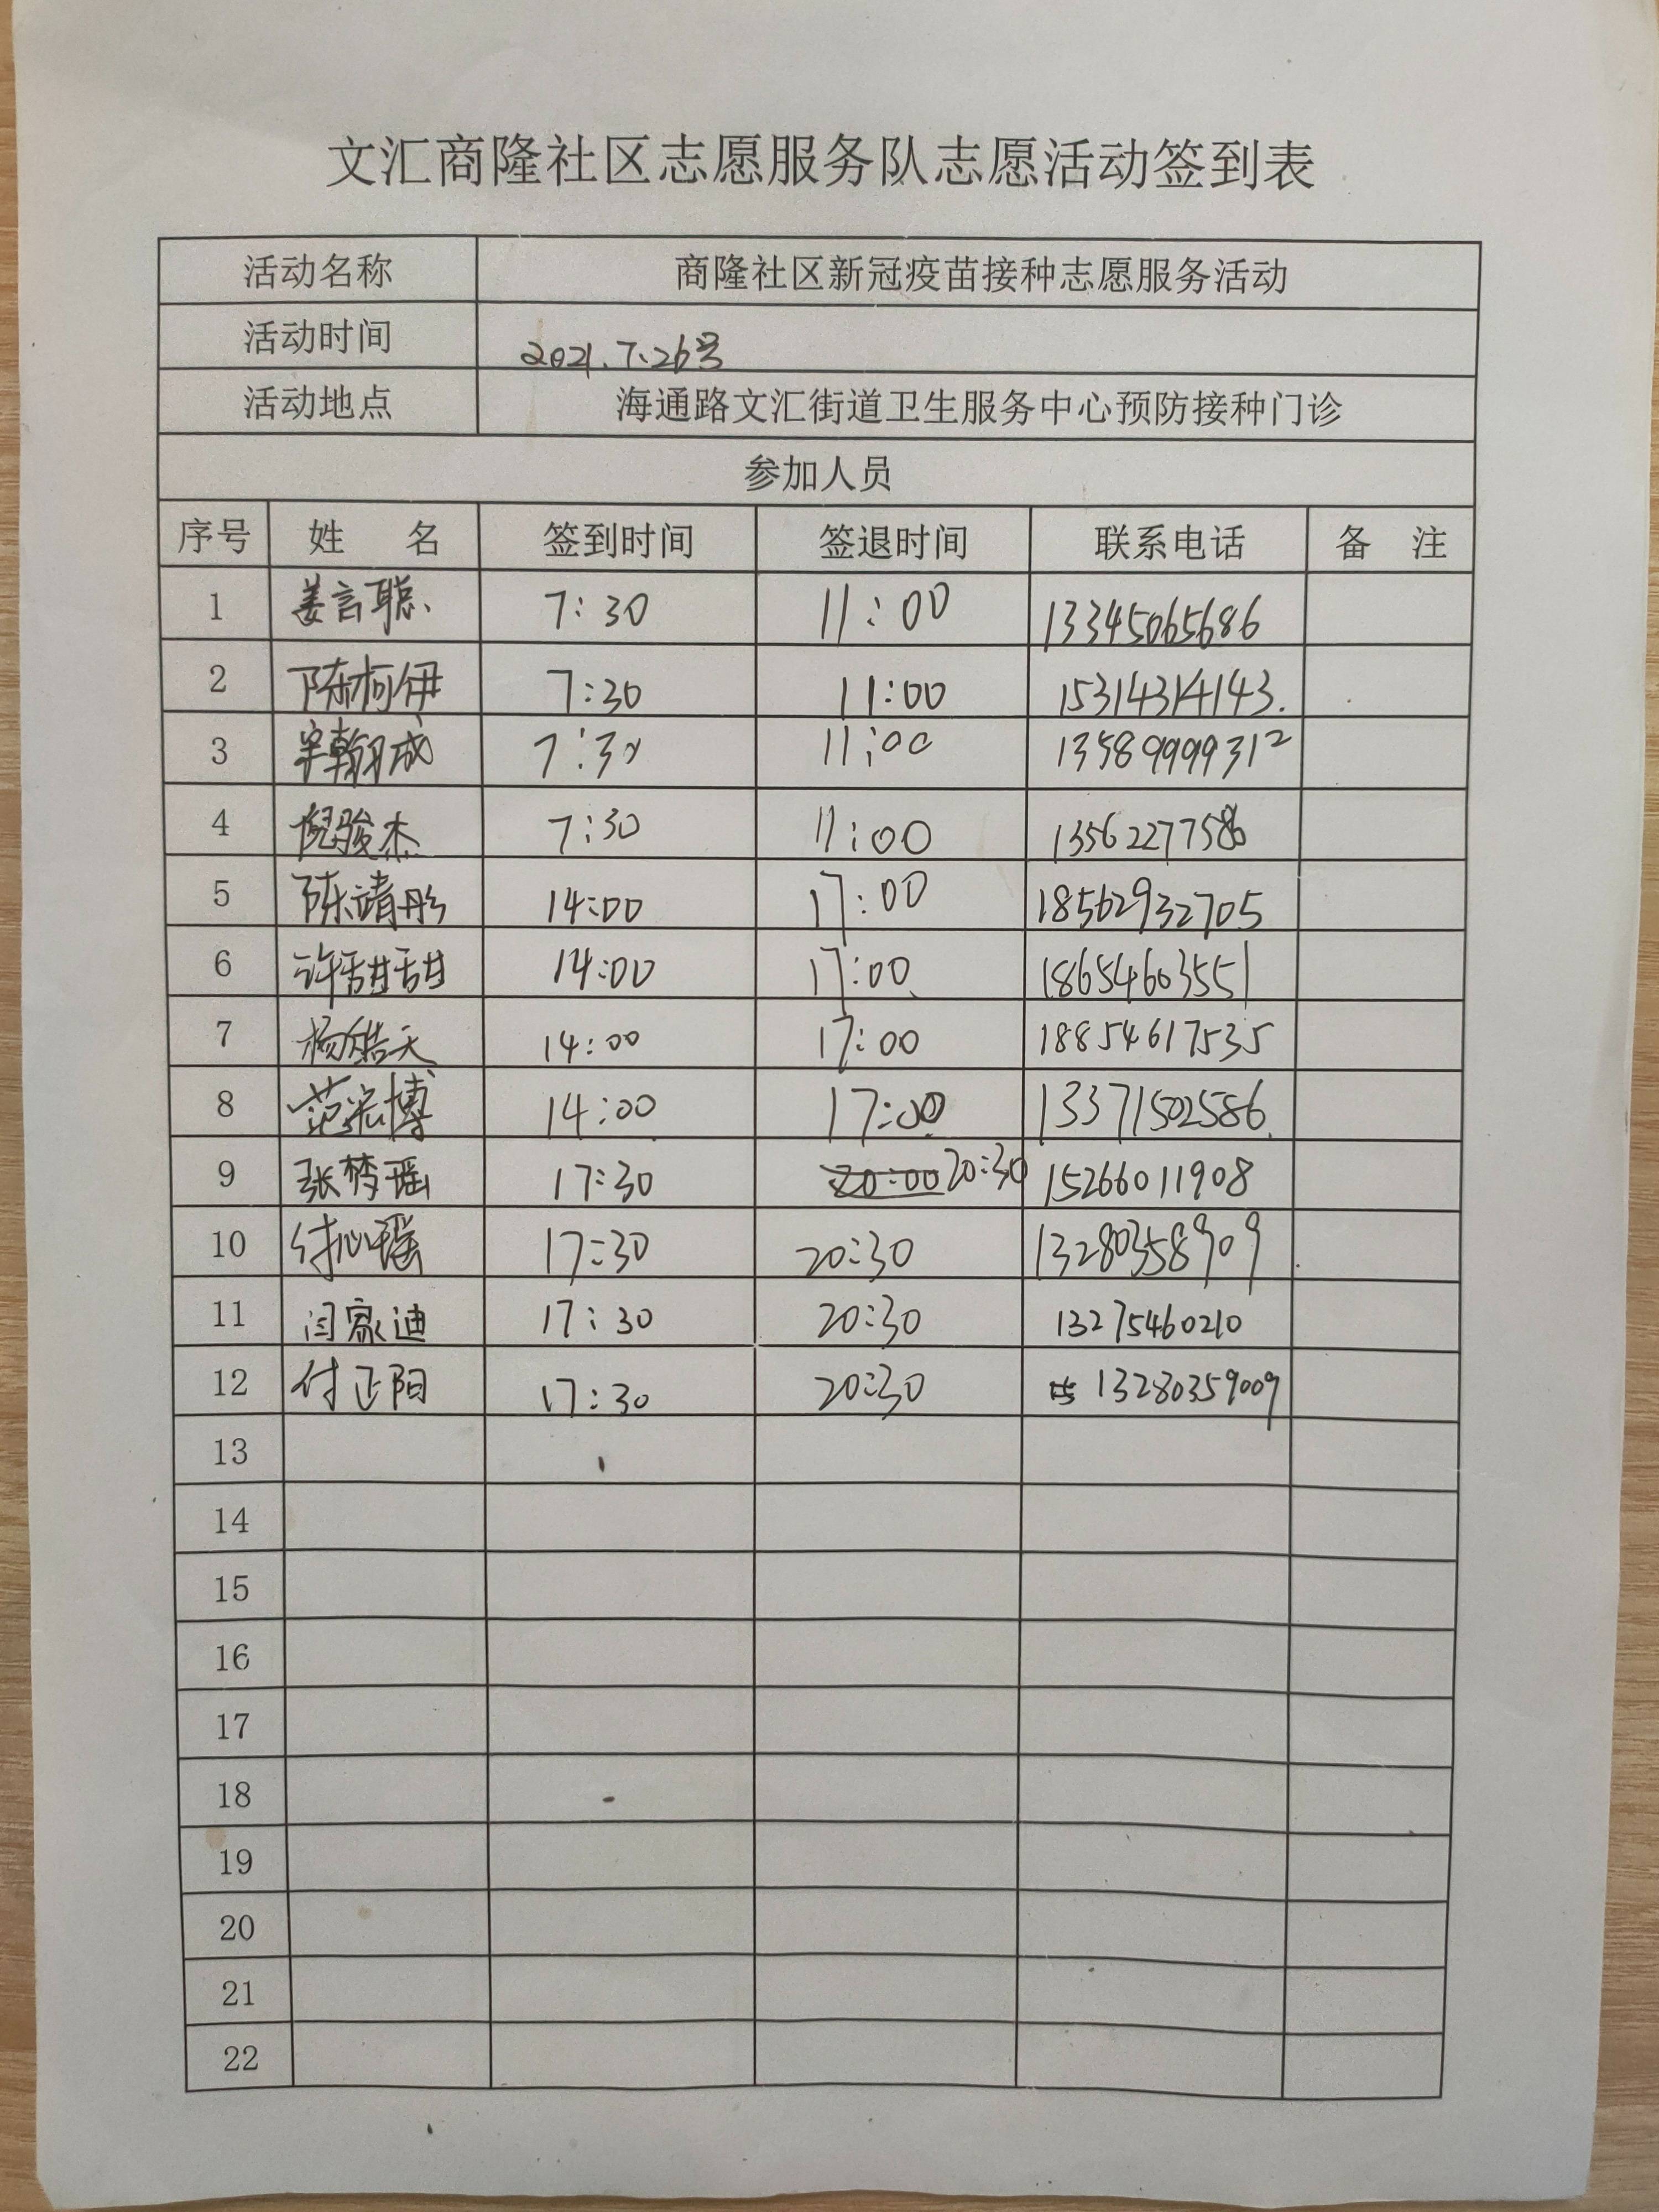 文汇商隆社区志愿服务队志愿活动签到表
活动名称 商隆社区新冠疫苗接种志愿服务活动
活动时间 2021.7.26号
活动地点 海通路文汇街道卫生服务中心预防接种门诊
参加人员
序号 姓 名 签到时间 签退时间 联系电话 备 注
1 姜言聪 7:30 11:00 13345065686
2 陈柯伊 7:30 11:00 15314314143.
3 7:30 11:00 13589999312
4 倪骏杰 7:30 11:00 13562277586
5 陈靖彤 14:00 17:00 18562932705
6 许甜甜 14:00 17:00 18654603551
7 杨皓天 14:00 17:00 18854617535
8 范宏博 14:00 17:00 13371502586
9 张梦瑶 17:30 20:00 20:30 15266011908
10 付心瑶 17:30 20:30 13280358909
11 闫家迪 17:30 20:30 13275460210
12 付正阳 17:30 20:30 13280359009
13
14
15
16
17
18
19
20
21
22